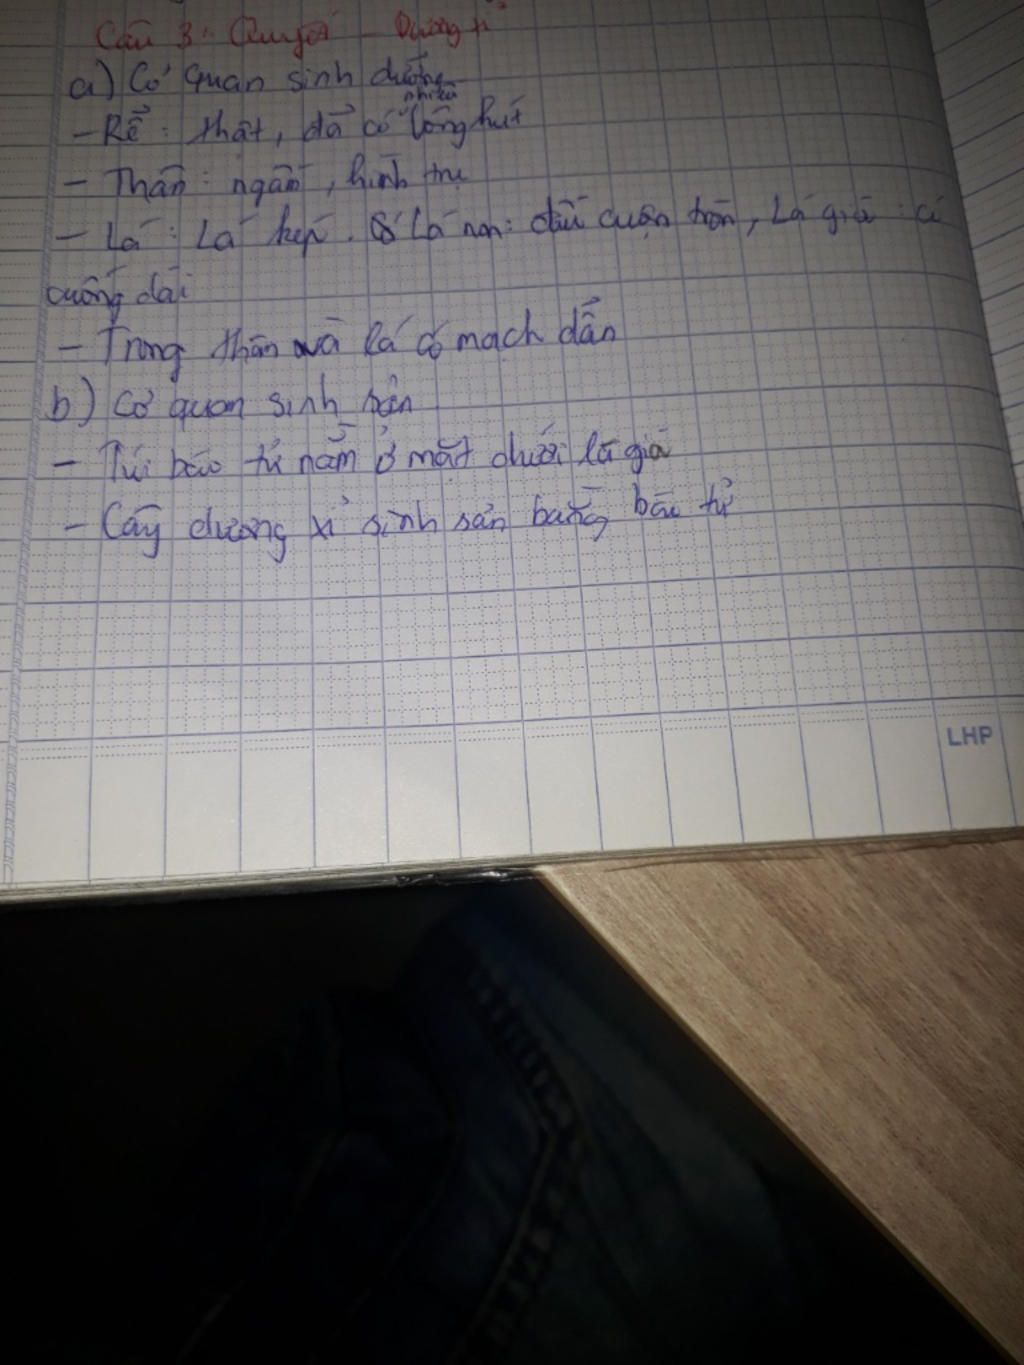 Câu 3: Quyết - Dương xỉ
a) Cơ quan sinh dưỡng
nhiều
- Rễ: thật, đã có lông hút
- Thân: ngắn, hình trụ
- Lá: Lá kép. Lá non: đầu cuộn tròn, Lá già: có
cuống dài
- Trong thân và lá có mạch dẫn
b) Cơ quan sinh sản
- Túi bào tử nằm ở mặt dưới lá già
- Cây dương xỉ sinh sản bằng bào tử
LHP